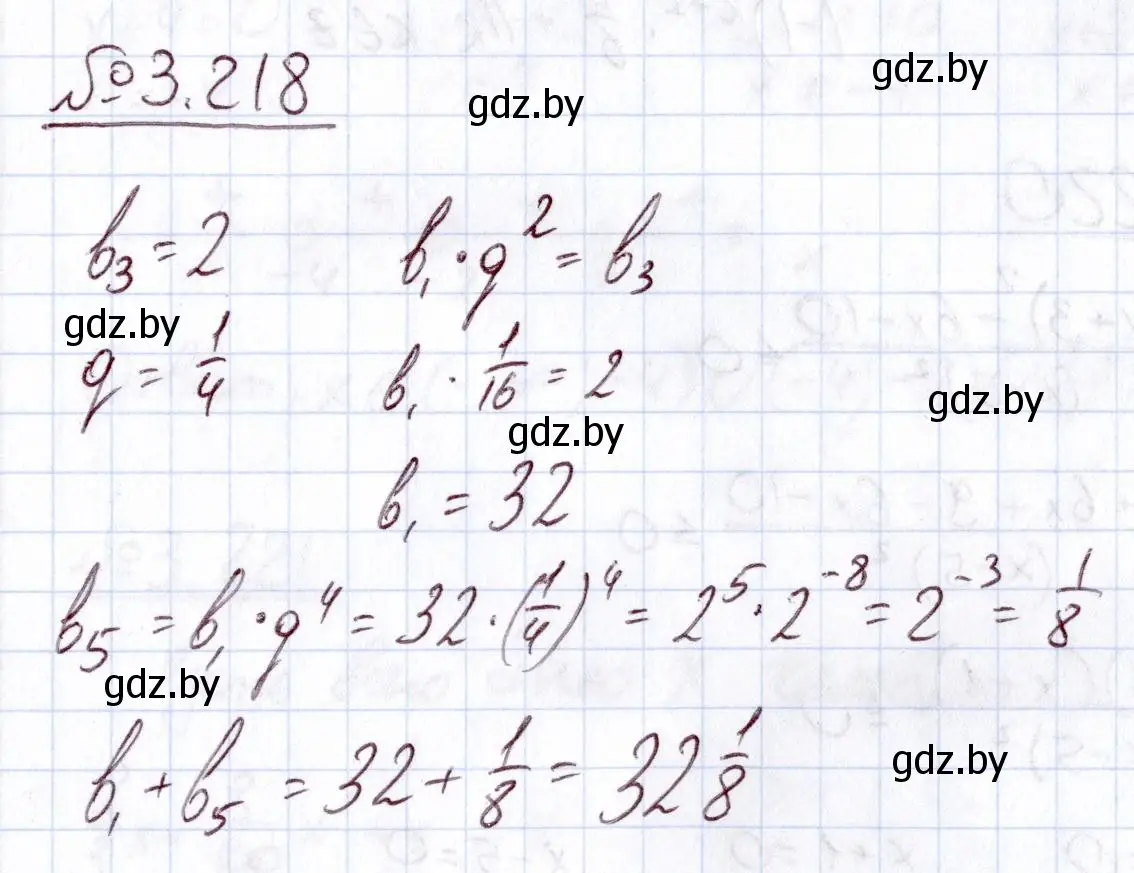 № 3.218
gdz.by
gdz.by
b₃ = 2
b₁ · q² = b₃
gdz.by
q = 1/4
b₁ · 1/16 = 2
gdz.by
gdz.by
b₁ = 32
b₅ = b₁ · q⁴ = 32 · (1/4)⁴ = 2⁵ · 2⁻⁸ = 2⁻³ = 1/8
gdz.by
b₁ + b₅ = 32 + 1/8 = 32 1/8
gdz.by